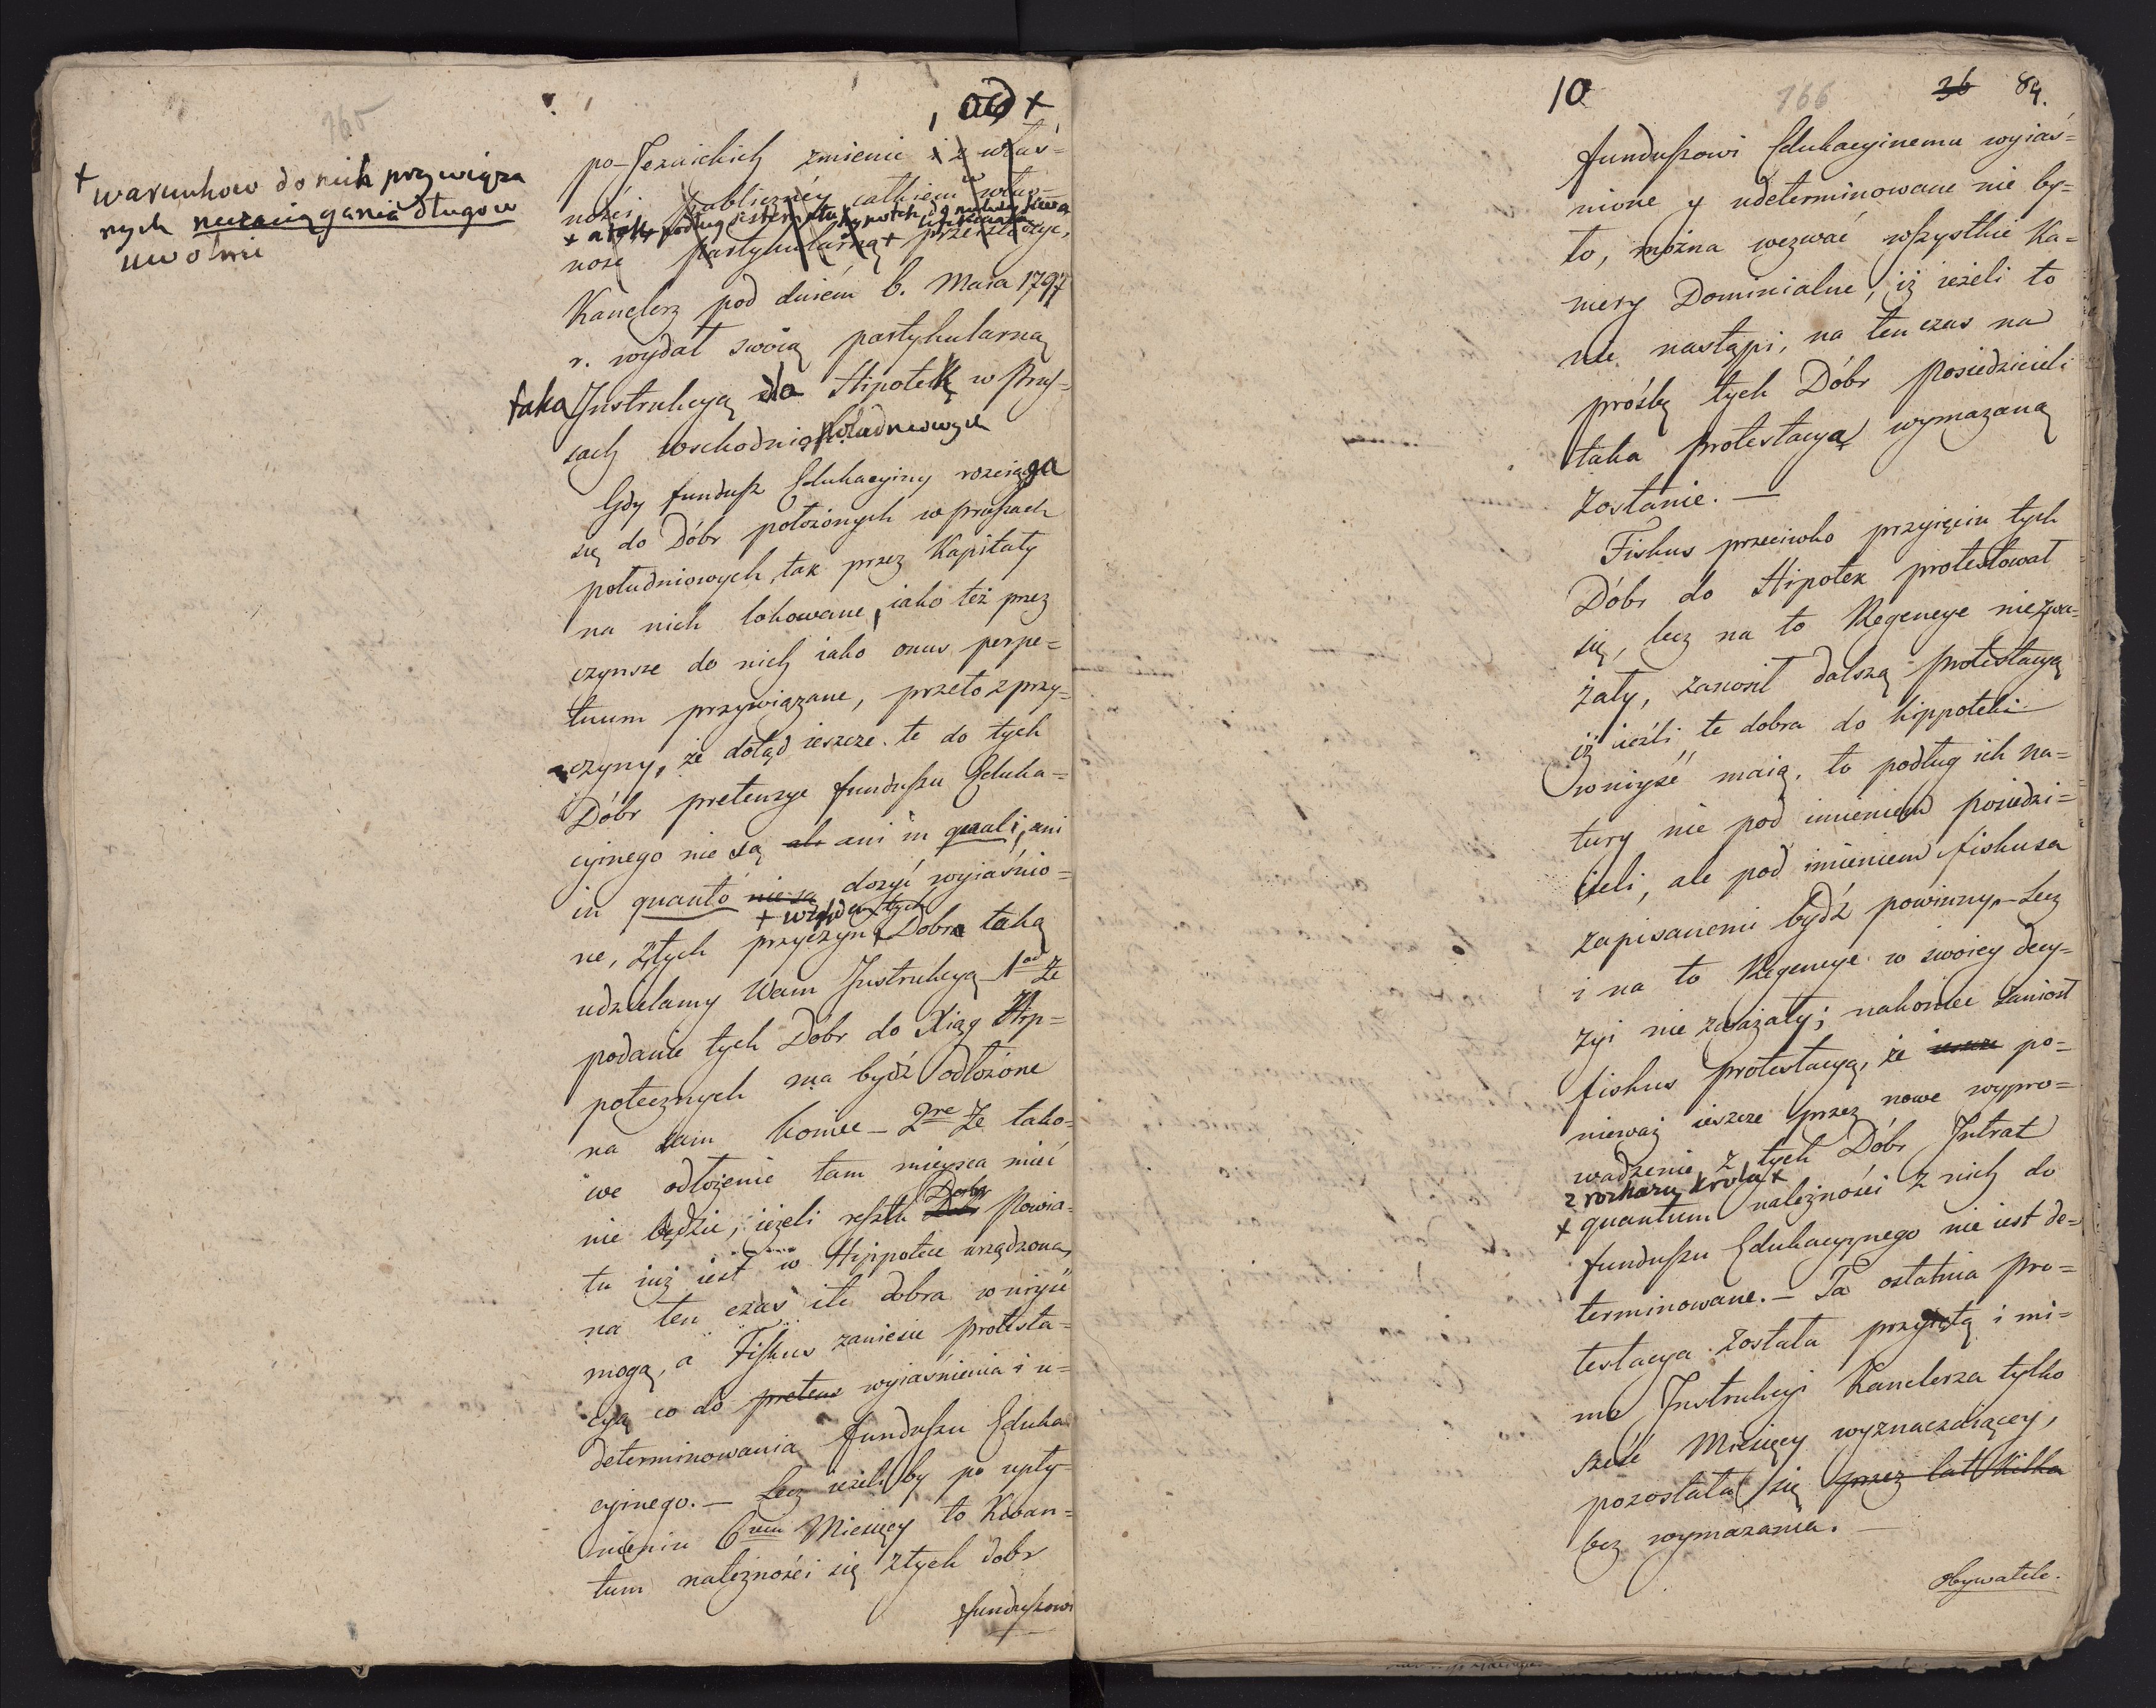 765
, od +
+ warunkow do nich przywiąza
nych niezaciągania długow
uwolnić
po-Jezuickich zmienić i z włas=
ności publiczney całkiem w włas=
+ a tak podług
ność partykularną + przeistoczyć,
Kanclerz pod dniem 6. Maia 1797
r. wydał swoią partykularną
taką Instrukcyą dla Hipotek w Prus=
sach wschodnich południowych
Gdy fundusz Edukacyiny rozciąga
się do Dóbr położonych w prusach
południowych, tak przez Kapitały
na nich lokowane, iako też przez
czynsze do nich iako onus perpe=
tuum przywiązane, przeto z przy=
czyny, że dotąd ieszcze te do tych
Dóbr pretensye funduszu Eduka=
cyinego nie są ale ani in quali, ani
in quanto nie są dosyć wyiaśnio=
+ względem tych
ne, z tych przyczyn + Dobr taką
udzielamy Wam Instrukcyą 1od Że
podanie tych Dóbr do Xiąg Hyp=
potecznych ma bydź odłożone
na sam koniec – 2re Że tako=
we odłożenie tam mieysca mieć
nie będzie, ieżeli reszta Dobr Dóbr Powia=
tu iuż iest w Hippotece urządzona,
na ten czas ile dobra wniyść
mogą, a Fiskus zaniesie protesta=
cyą co do pretens wyiaśnienia i u=
determinowania funduszu Eduka
cyinego. – Lecz ieżeliby po upły=
nieniu 6ciu Miesięcy to Kwan=
tum należności się z tych dobr
funduszowi
10
766
36 84.
funduszowi Edukacyinemu wyiaś=
nione y udeterminowane nie by=
to, można wezwać wszystkie Ka=
mery Dominialne, iż ieżeli to
nie nastąpi, na ten czas na
prośbę tych Dóbr Posiedzicieli
taka protestacya wymazaną
zostanie. —
Fiskus przeciwko przyięciu tych
Dóbr do Hipotek protestował
się, lecz na to Regencye nie zwa=
żały, zanosił dalszą protestacyą
iż ieźli te dobra do hippoteki
wniyść maią, to podług ich na=
tury nie pod imieniem posiedzi=
cieli, ale pod imieniem fiskusa
zapisanemi bydź powinny. – Lecz
i na to Regencye w swoiey decy=
zyi nie zważały; nakoniec zaniosł
fiskus protestacyą, że ieszcze po=
nieważ ieszcze przez nowe wypro=
wadzenie z tych Dóbr Intrat
z rozkazu krola +
+ quantum należności z nich do
funduszu Edukacyynego nie iest de=
terminowane. – Ta ostatnia pro=
testacya została przyiętą i mi=
mo Instrukcyi Kanclerza tylko
sześć Miesięcy wyznaczaiącey,
pozostała się przez lat kilka
bez wymazania. —
Obywatele.